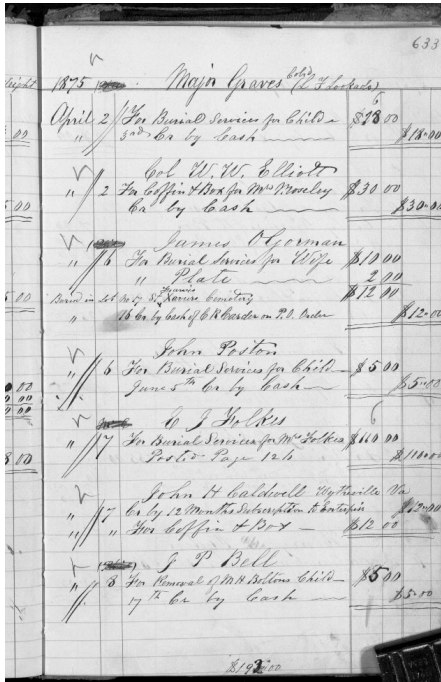 633
1875 Major Graves Cold
April 2 For Burial Services for Child $18 00
3rd Cr by Cash $18=00
Col W. W. Elliott
" 2 For Coffin & Box for Mrs Moseley $30 00
Cr by Cash $30=00
James OGorman
" 6 For Burial Services for Wife $10 00
" Plate 2 00
Buried in Lot No 57 St Francis Xaviers Cemetery $12 00
" 16 Cr by Cash of C R Carder on P.O. Order $12=00
John Poston
" 6 For Burial Services for Child $5 00
June 5th Cr by Cash $5=00
J Folkes
" 7 For Burial Services for Mr Folkes
Posted Page 126
John H Caldwell Wytheville Va
" 7 Cr by 12 Months Subscription to Enterprise $12=00
" " For Coffin & Box $12 00
J P Bell
" 8 For Removal of M H Boltons Child $5 00
17th Cr by Cash $5=00